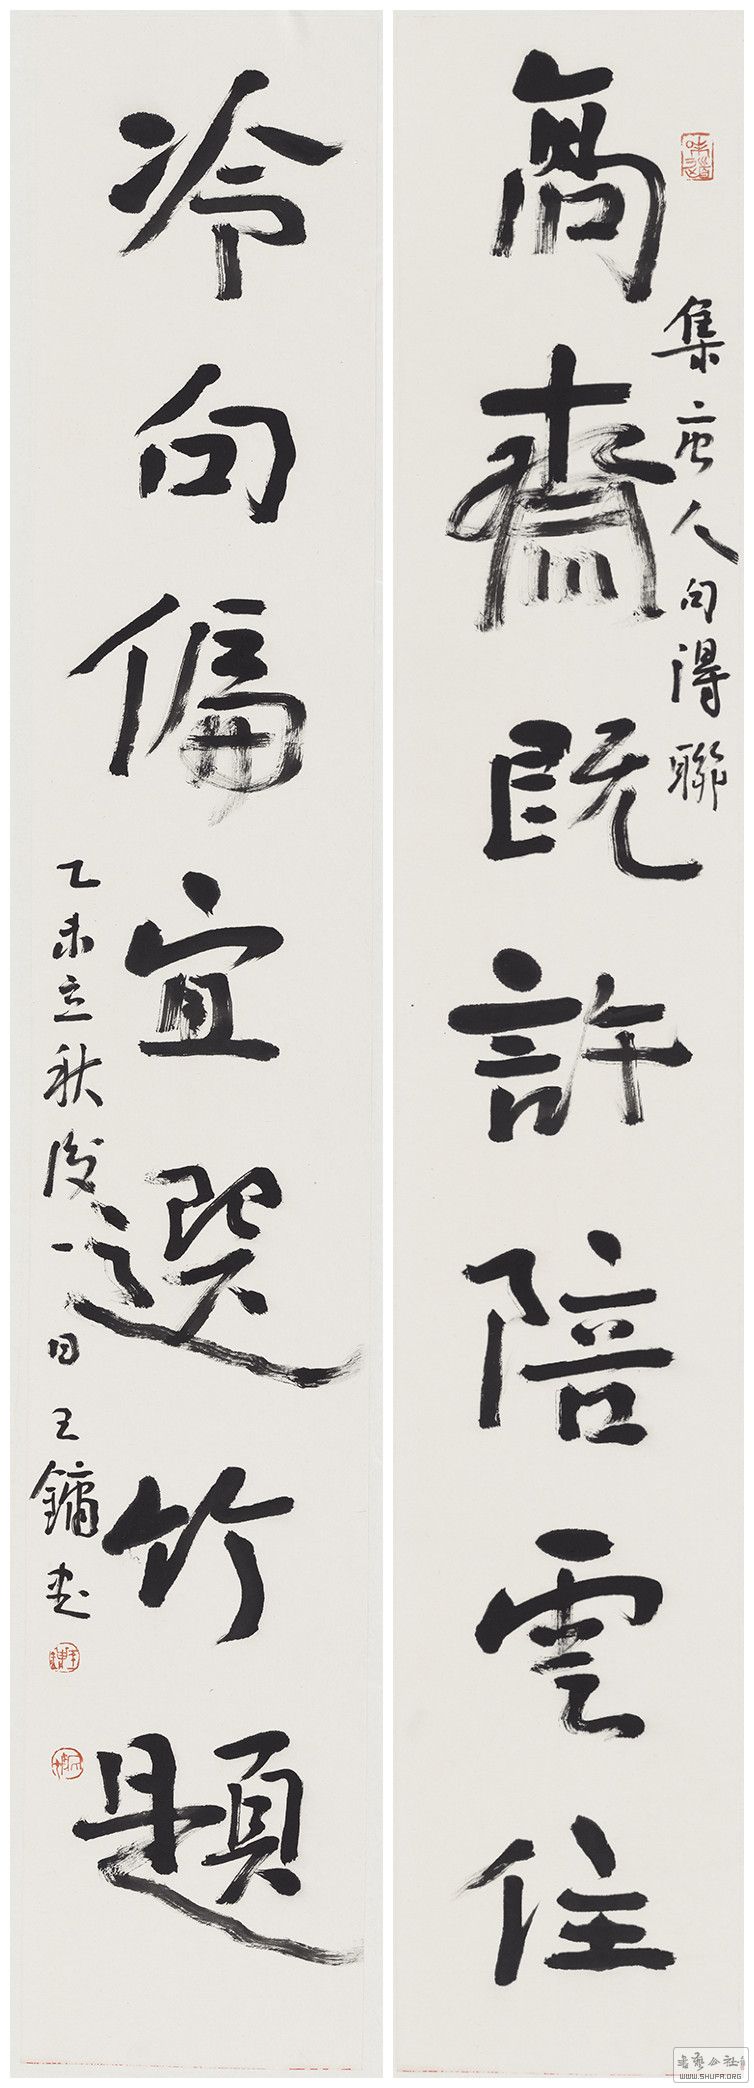 高齋既許陪雲住
集唐人句得聯
冷句偏宜選竹題
乙未立秋後一日王鏞書
書藝公社
WWW.SHUFA.ORG